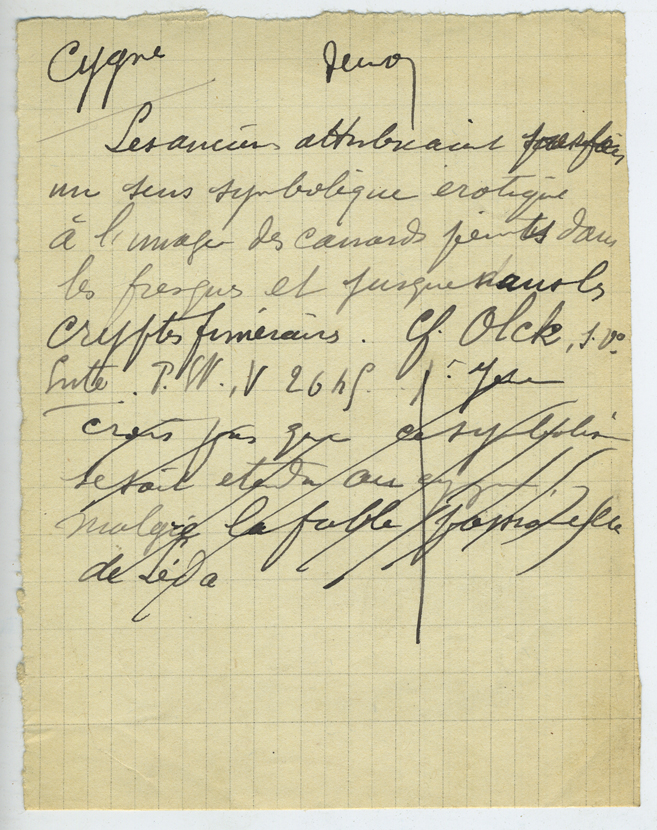 Cygne
Les anciens attribuaient parfois
un sens symbolique erotique
à l'image des canards peints dans
les fresques et jusque dans les
cryptes funéraires. Cf. Olck, s. v°
Ente. P. W., V 2645. Je ne
crois pas que ce symbolisme
se soit etendu au cygne
malgré la fable
de Léda